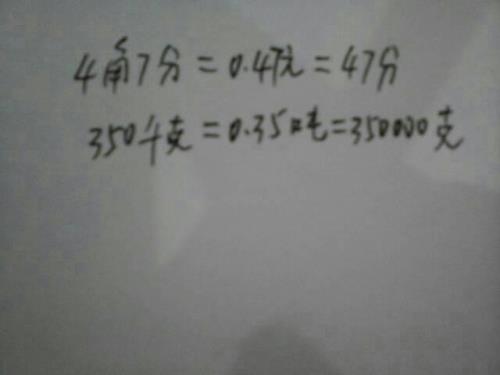 4角7分=0.47元=47分
350千克=0.35吨=350000克